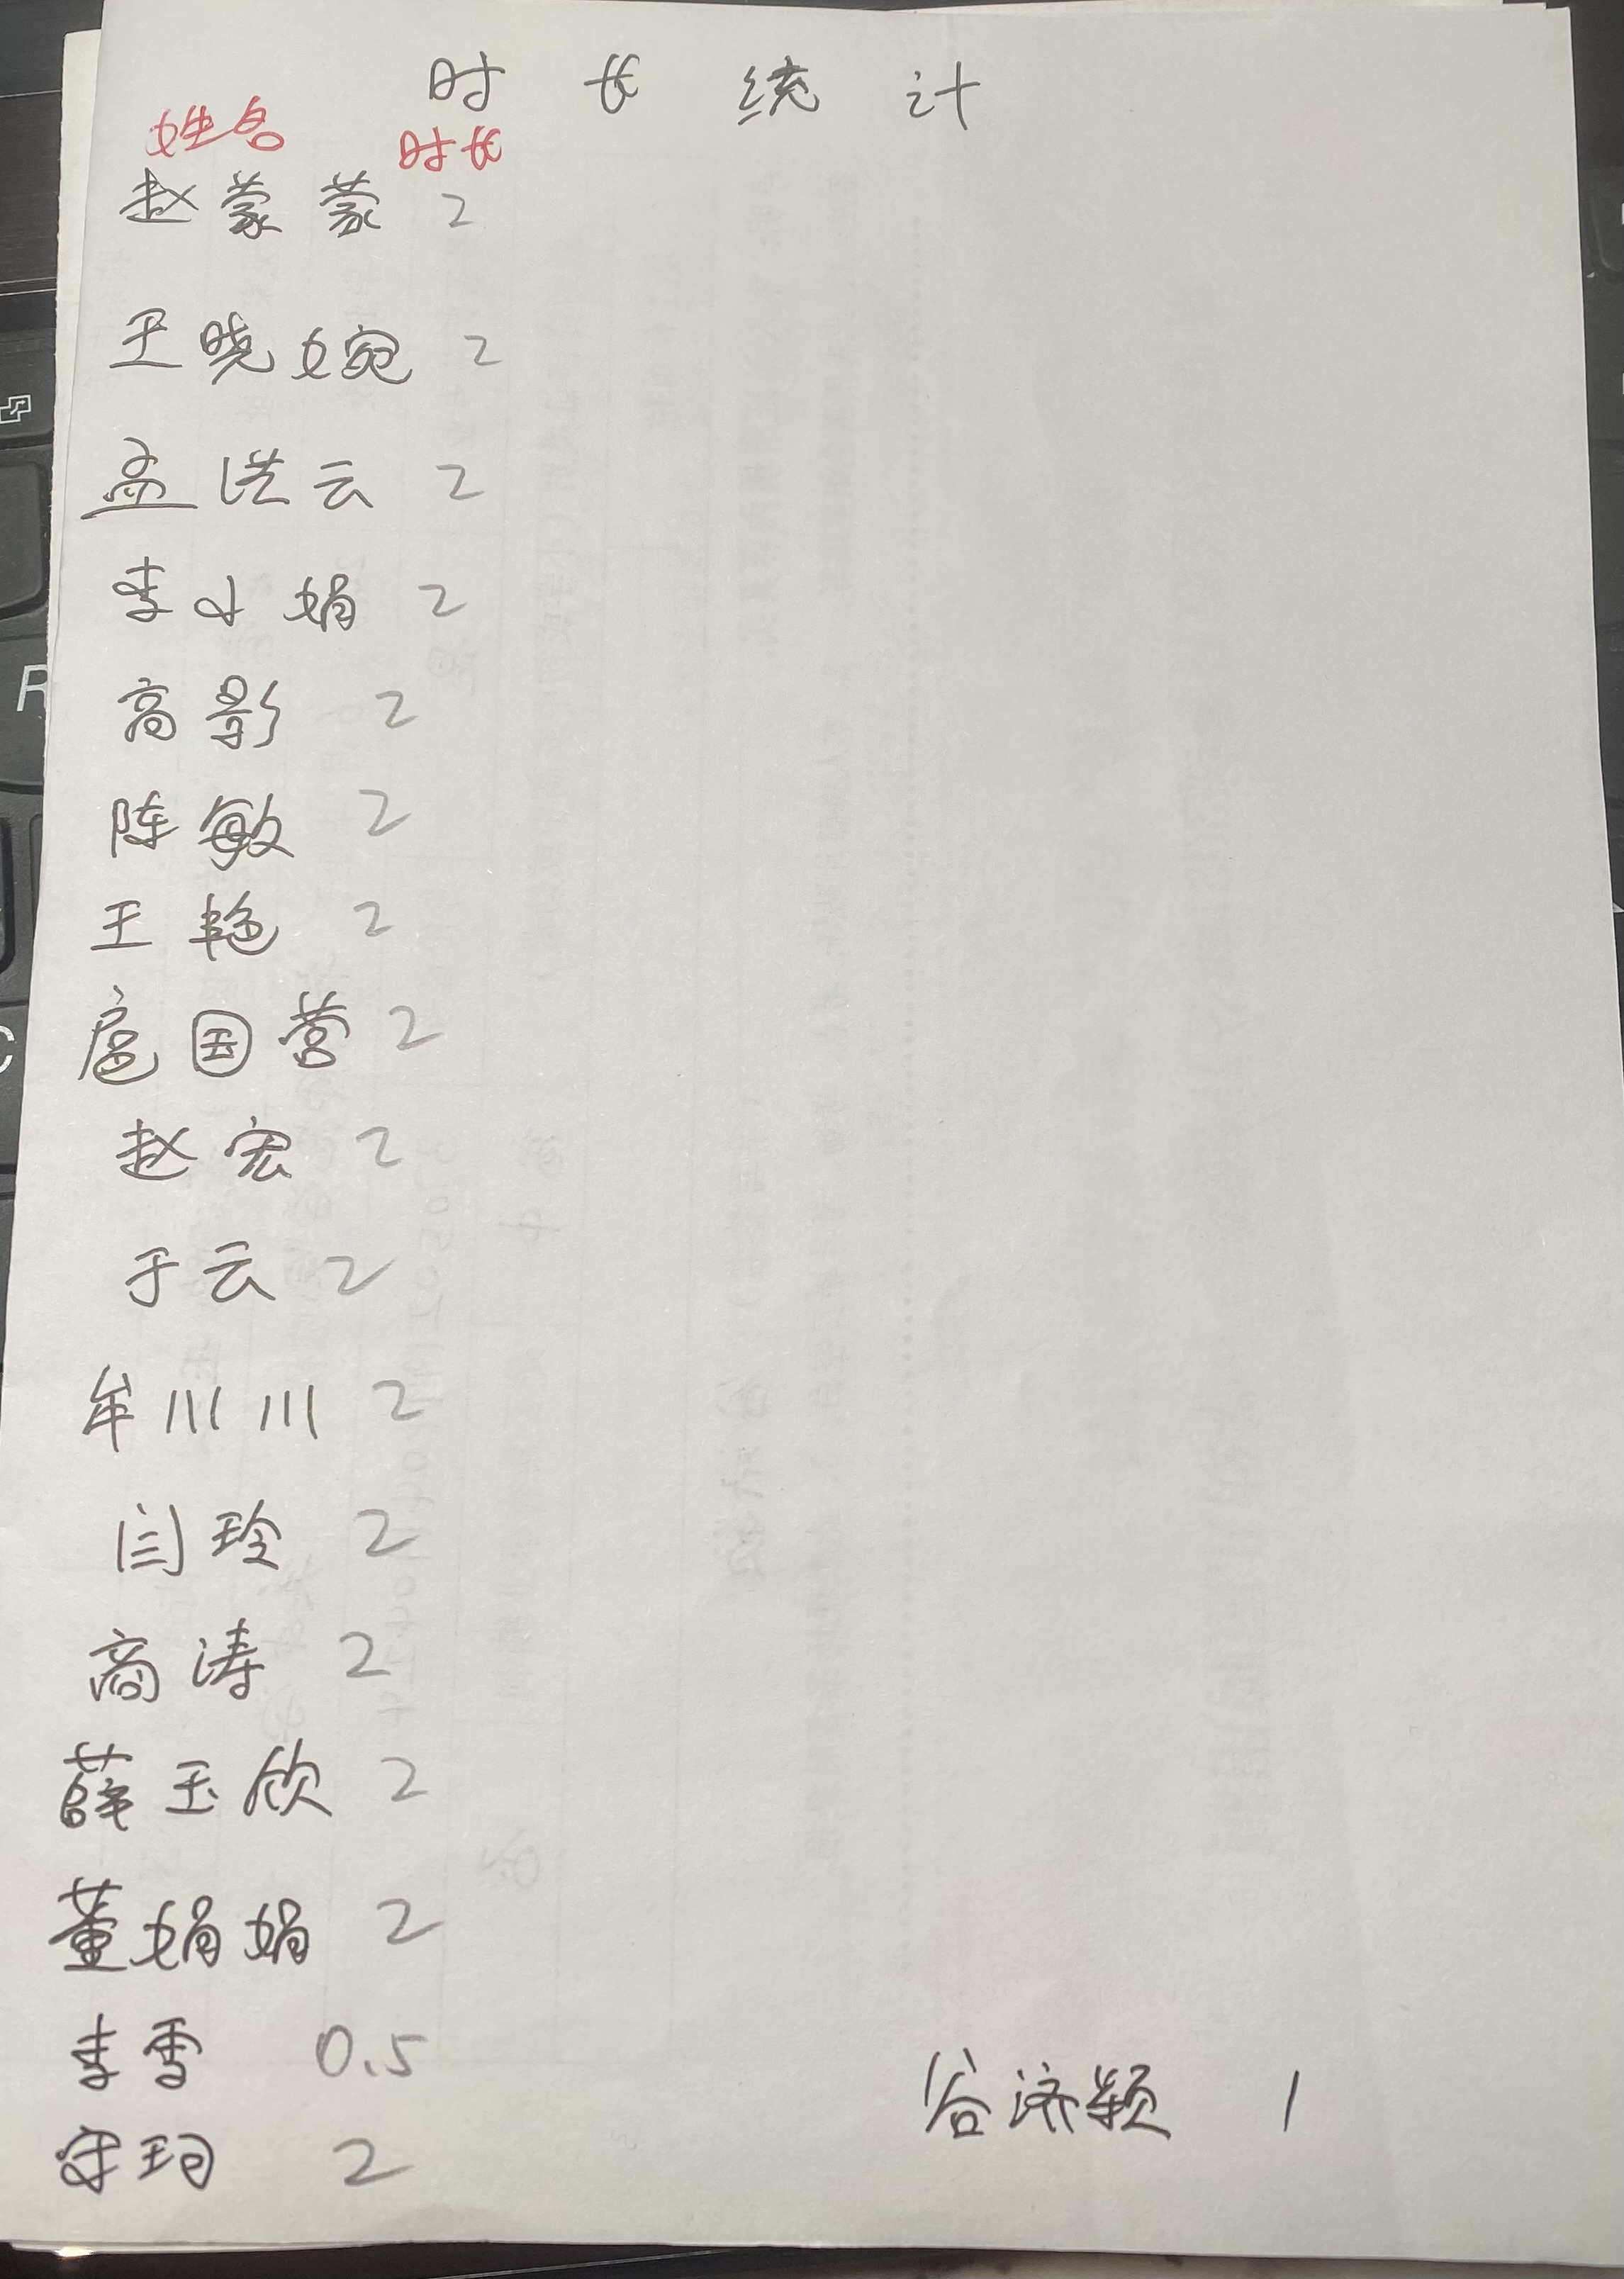 时长统计
姓名 时长
赵蒙蒙 2
王晓婉 2
孟洪云 2
李小娟 2
高影 2
陈敏 2
王艳 2
扈国营 2
赵宏 2
于云 2
牟川川 2
闫玲 2
商涛 2
薛玉欣 2
董娟娟 2
李雪 0.5
宋珂 2
谷济颖 1
R
C